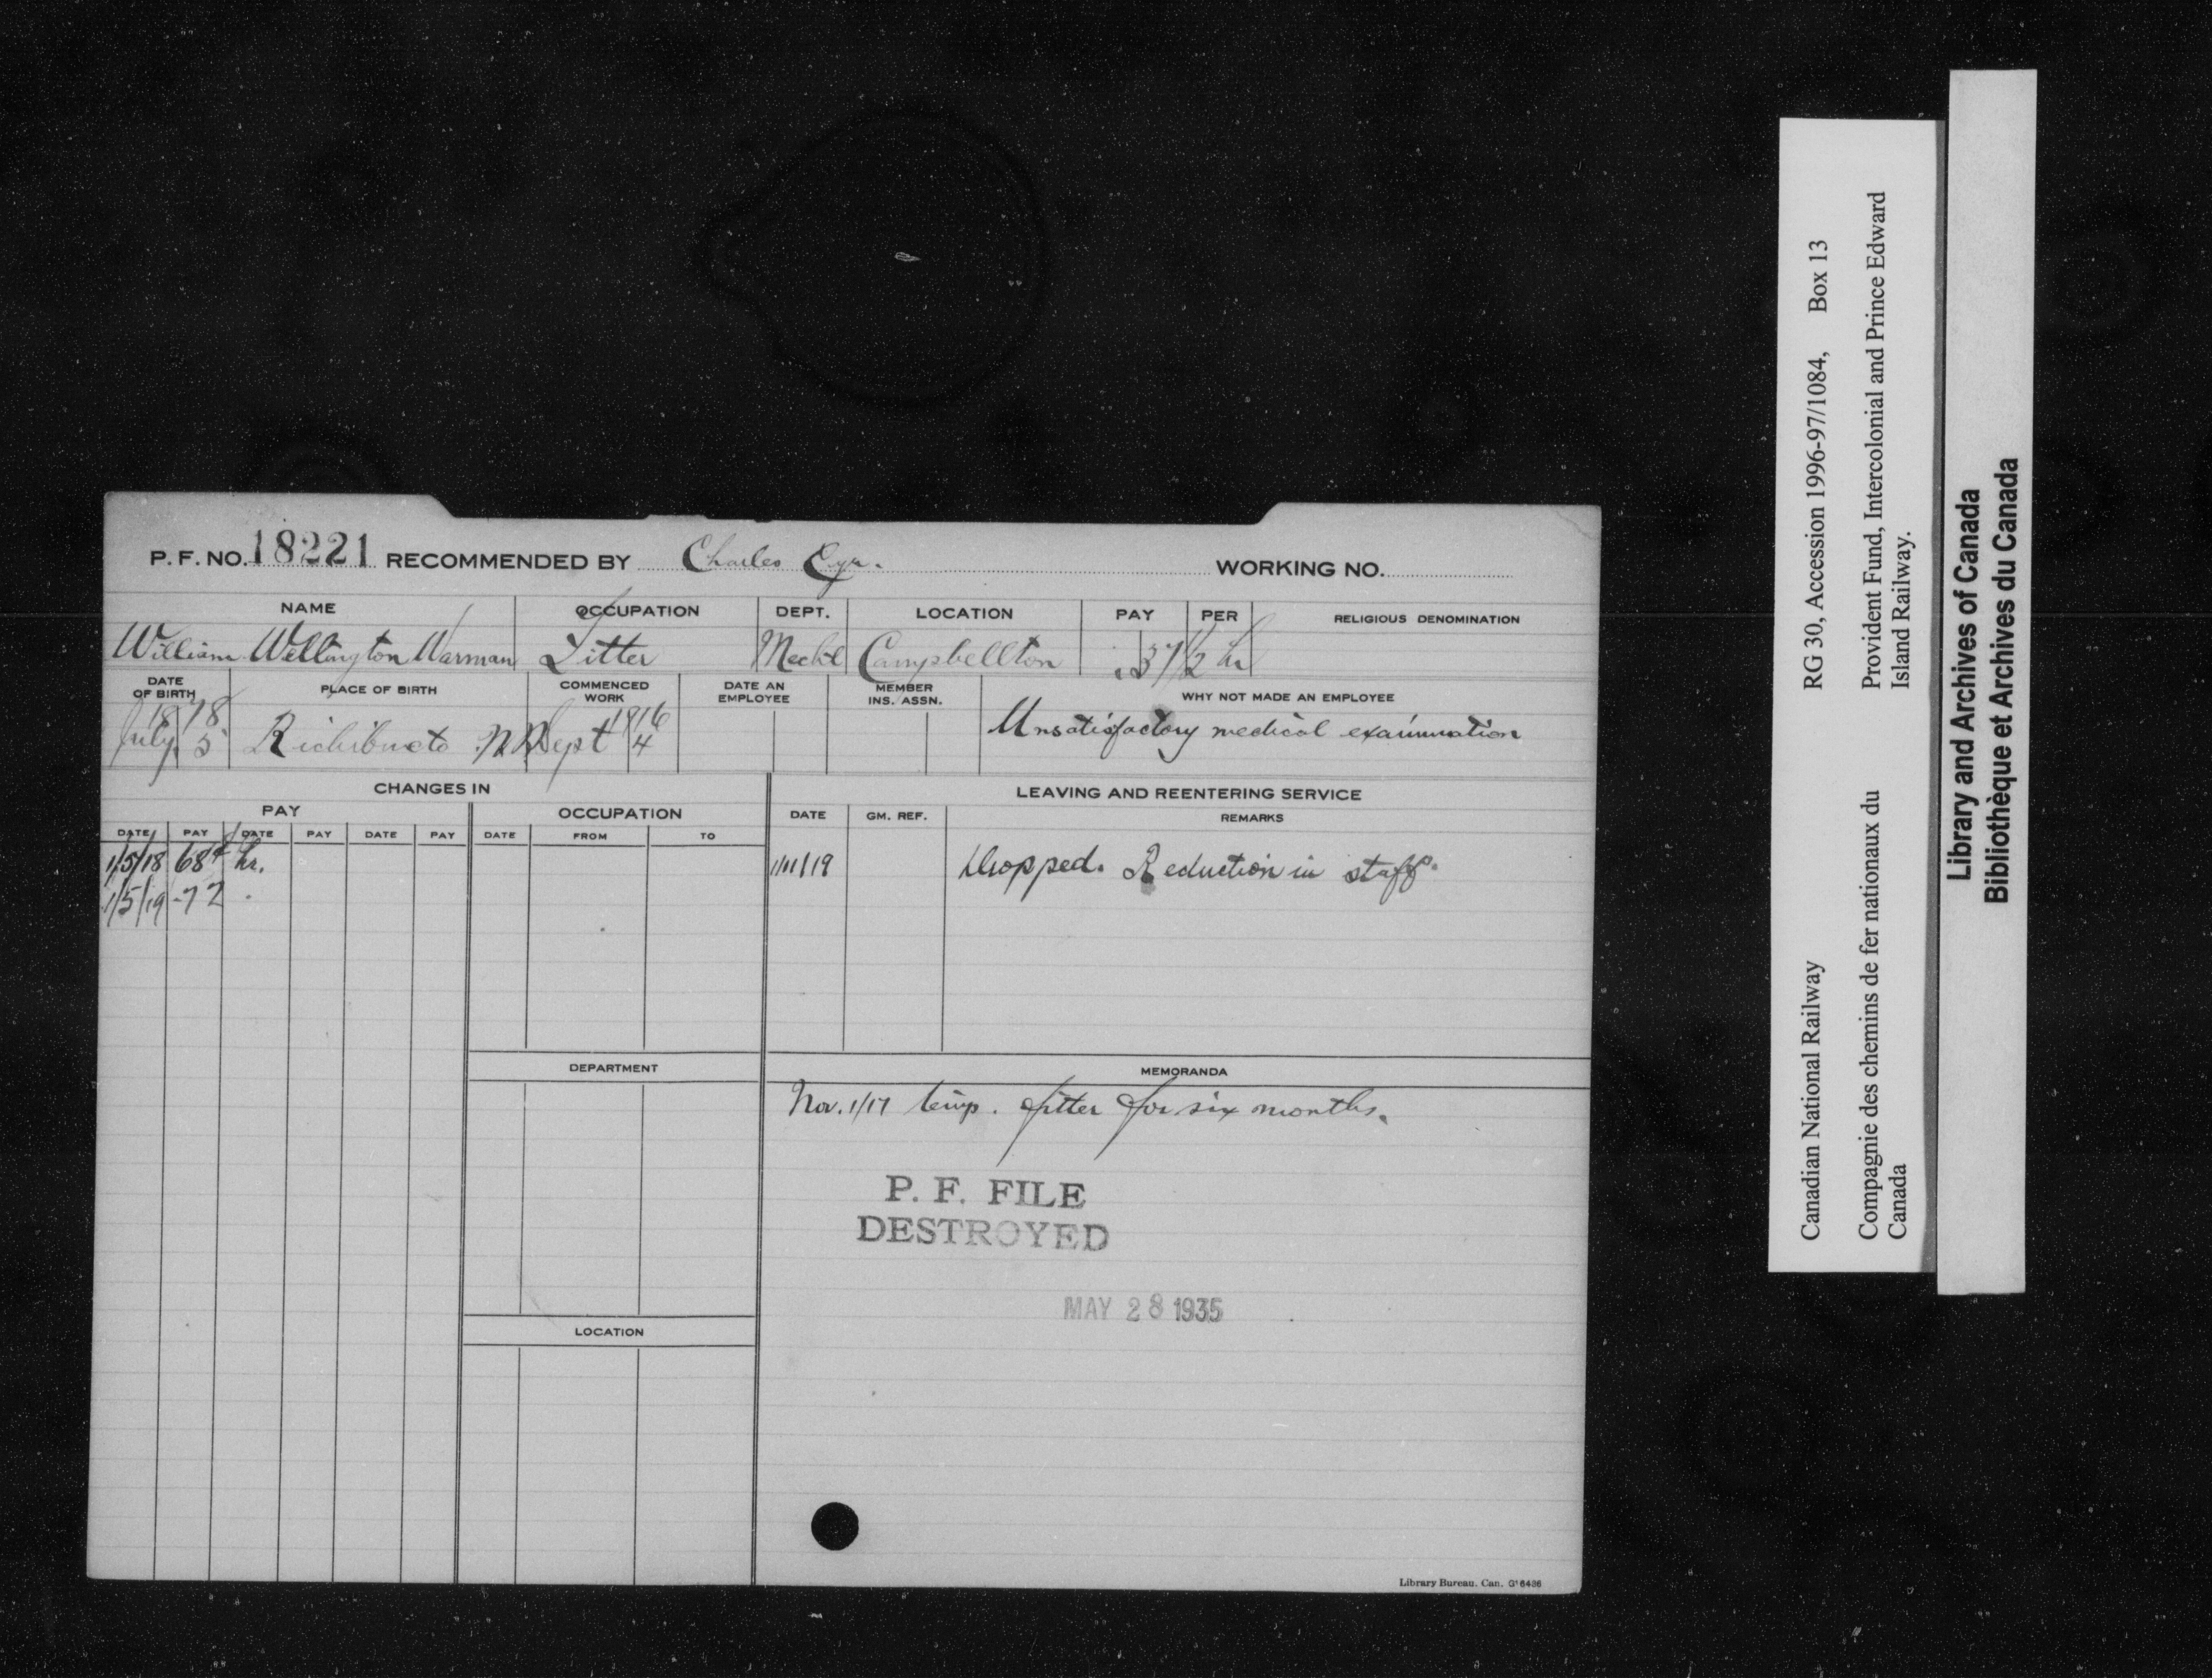 P. F. NO. 18221 RECOMMENDED BY Charles WORKING NO.
NAME OCCUPATION DEPT. LOCATION PAY PER RELIGIOUS DENOMINATION
William Wellington Warman Fitter Mech'l Campbellton .37 1/2 hr
DATE OF BIRTH PLACE OF BIRTH COMMENCED WORK DATE AN EMPLOYEE MEMBER INS. ASSN. WHY NOT MADE AN EMPLOYEE
1878 1916
July 5 Richibucto N.B. Sept 4 Unsatisfactory medical examination
CHANGES IN LEAVING AND REENTERING SERVICE
PAY OCCUPATION DATE GM. REF. REMARKS
DATE PAY DATE PAY DATE PAY DATE FROM TO
1/5/18 68¢ hr. 1/11/19 Dropped. Reduction in staff.
1/5/19 -72
DEPARTMENT MEMORANDA
Nov. 1/17 temp. fitter for six months.
P. F. FILE
DESTROYED
MAY 28 1935
LOCATION
Library Bureau. Can. G16436
Canadian National Railway RG 30, Accession 1996-97/1084, Box 13
Compagnie des chemins de fer nationaux du Provident Fund, Intercolonial and Prince Edward
Canada Island Railway.
Library and Archives of Canada
Bibliothèque et Archives du Canada